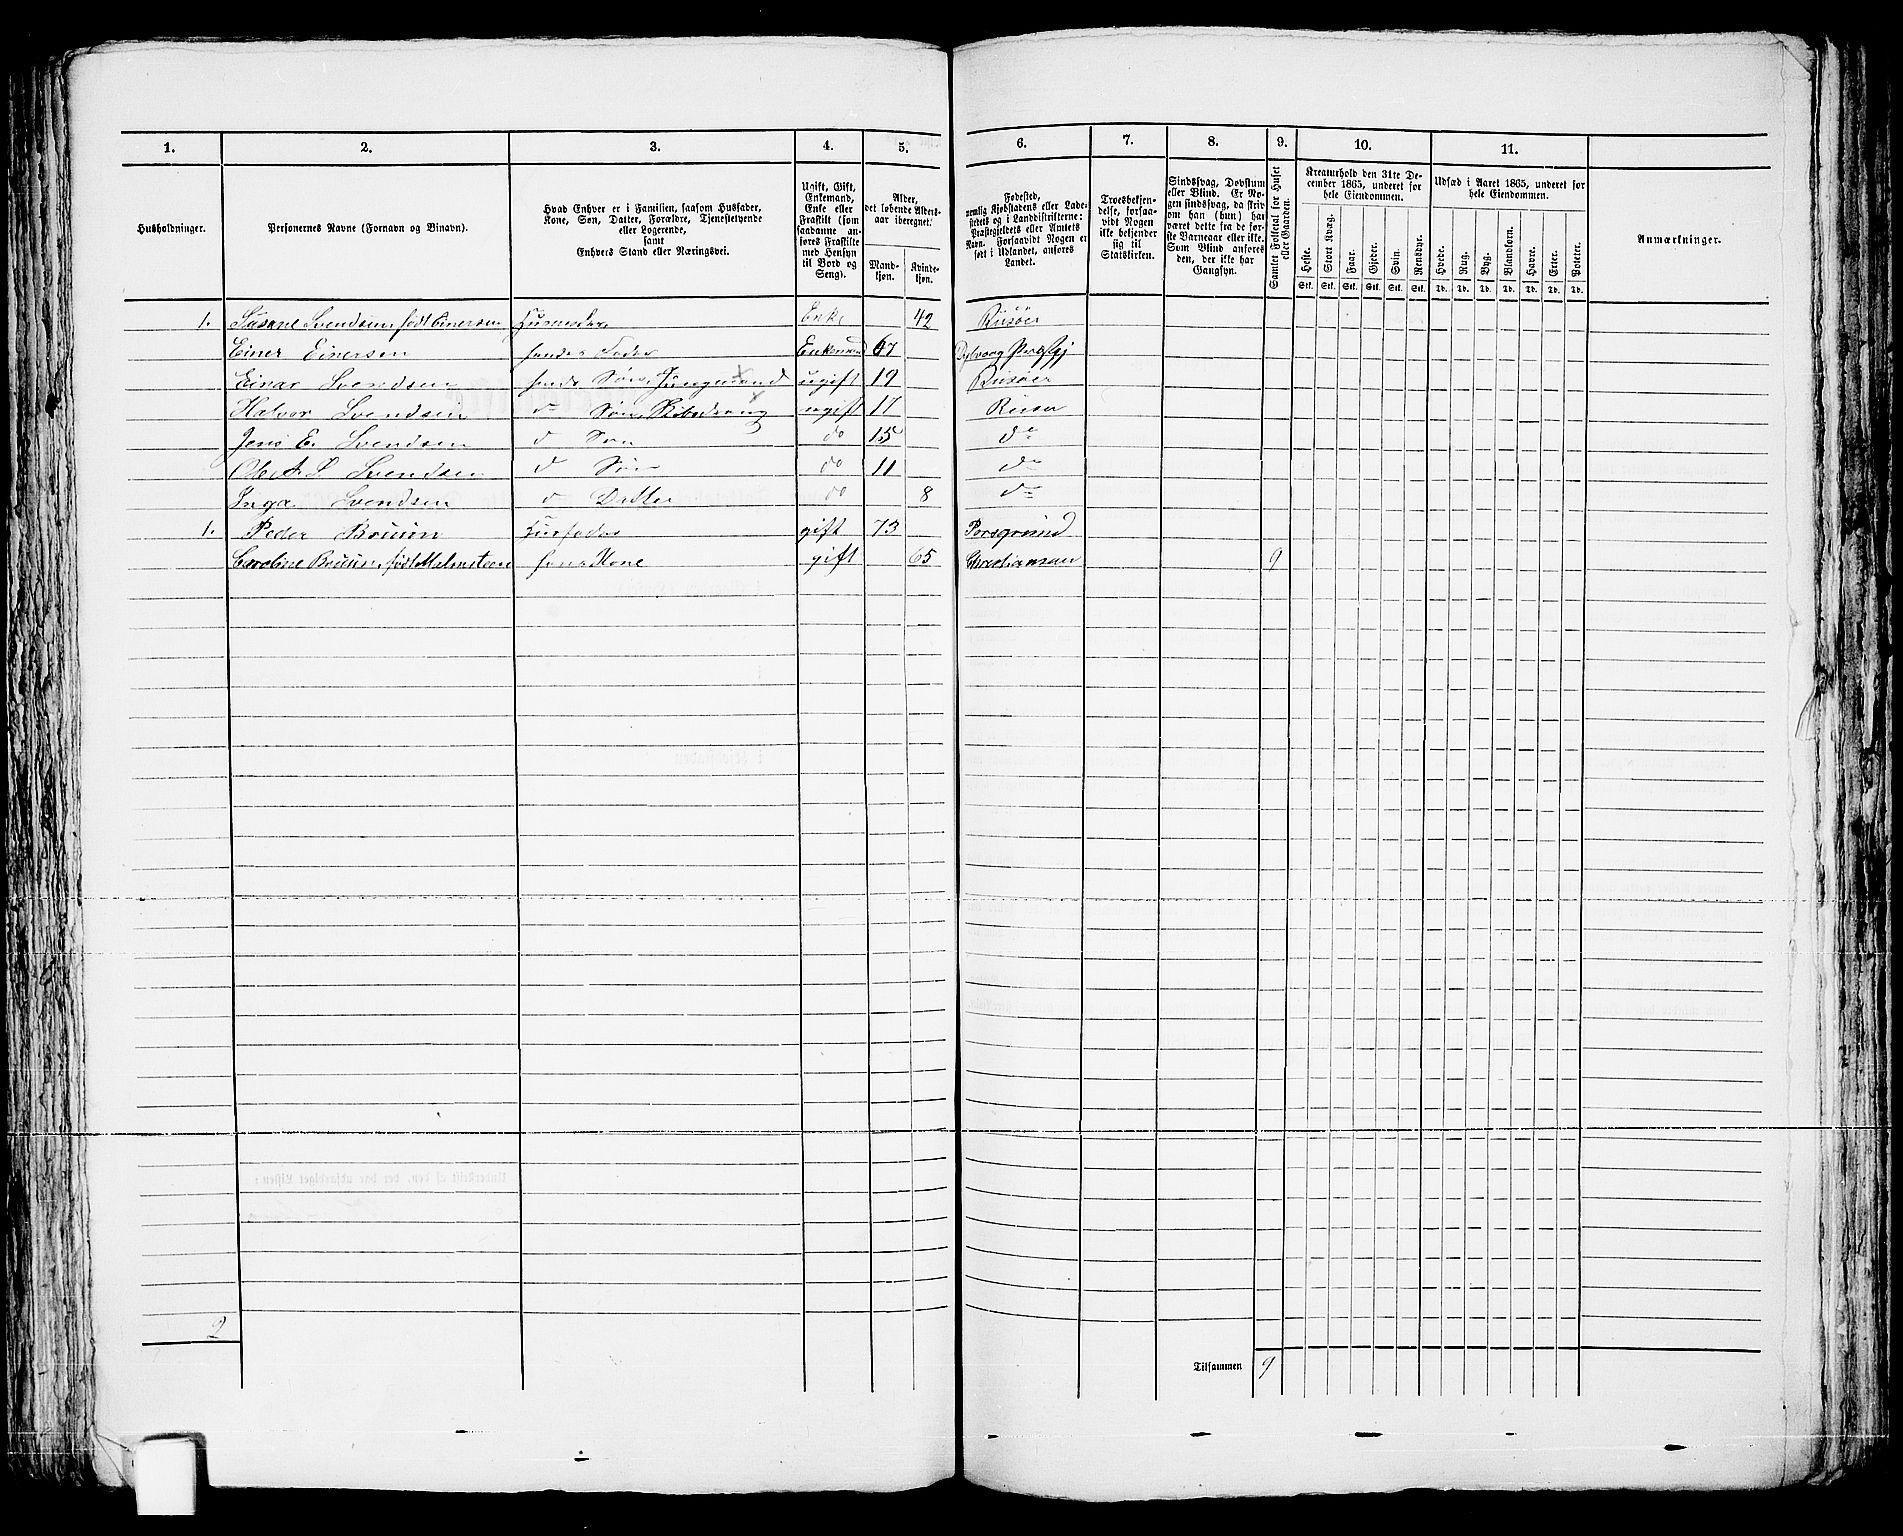 1. 2. 3. 4. 5. 6. 7. 8. 9. 10. 11.
Husholdninger.
Personernes Navne (Fornavn og Binavn).
Hvad Enhver er i Familien, saasom Husfader,
Kone, Søn, Datter, Forældre, Tjenestetyende
eller Logerende,
samt
Enhvers Stand eller Næringsvei.
Ugift, Gift,
Enkemand,
Enke eller
Fraskilt (som
saadanne an-
føres Fraskilte
med Hensyn
til Bord og
Seng).
Alder,
det løbende Alders-
aar iberegnet.
Mand-
kjøn.
Kvinde-
kjøn.
Fødested,
nemlig Kjøbstadens eller Lade-
stedets og i Landdistrikterne:
Præstegjeldets eller Amtets
Navn. Forsaavidt Nogen er
født i Udlandet, anføres
Landet.
Troesbekjen-
delse, forsaa-
vidt Nogen
ikke bekjender
sig til
Statskirken.
Sindssvag, Døvstum
eller Blind. Er No-
gen sindssvag, da skriv
om han (hun) har
været dette fra de før-
ste Barneaar eller ikke.
Som Blind anføres
den, der ikke har
Gangsyn.
Samlet Folketal for Huset
eller Gaarden.
Kreaturhold den 31te De-
cember 1865, underet for
hele Eiendommen.
Heste. Stort Kvæg. Faar. Gjeder. Svin. Rensdyr.
Stk. Stk. Stk. Stk. Stk. Stk.
Udsæd i Aaret 1865, underet for
hele Eiendommen.
Hvede. Rug. Byg. Blandkorn. Havre. Erter. Poteter.
Td. Td. Td. Td. Td. Td. Td.
Anmærkninger.
1. Susane Svendsen, født Einersen Husmoder Enke 42 Risøer
Einer Einersen hendes Fader Enkemand 67 Dybvaag Præstgj
Einar Svendsen hends Søn, Jungmand ugift 19 Risøer
Halvor Svendsen d Søn ugift 17 Risør
Jens E. Svendsen d Søn do 15 do
Ole A. S Svendsen d Søn do 11 do
Inga Svendsen d Datter do 8 do
1. Peder Bruun Husfader gift 73 Porsgrund
Caroline Bruun, født Malmsteen hans Kone gift 65 Christiansan 9
2
Tilsammen 9